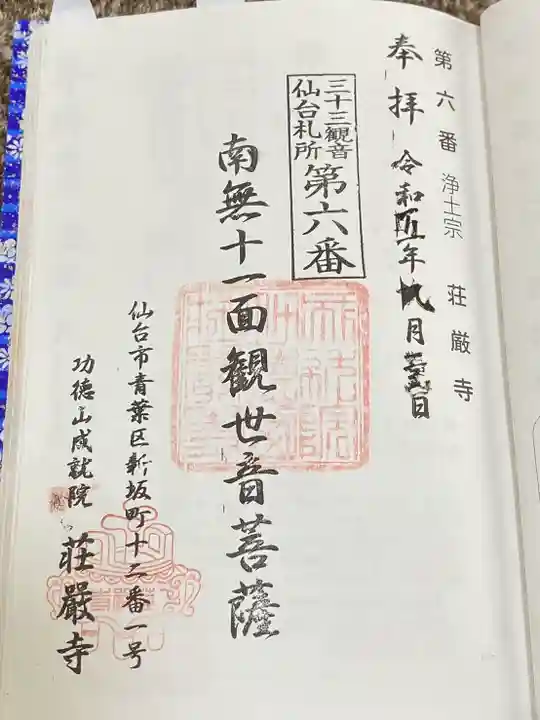 第六番 浄土宗 荘厳寺
奉拝 令和五年九月 日
三十三観音
仙台札所
第六番
南無十一面観世音菩薩
仙台市青葉区新坂町十二番一号
功徳山成就院 荘厳寺